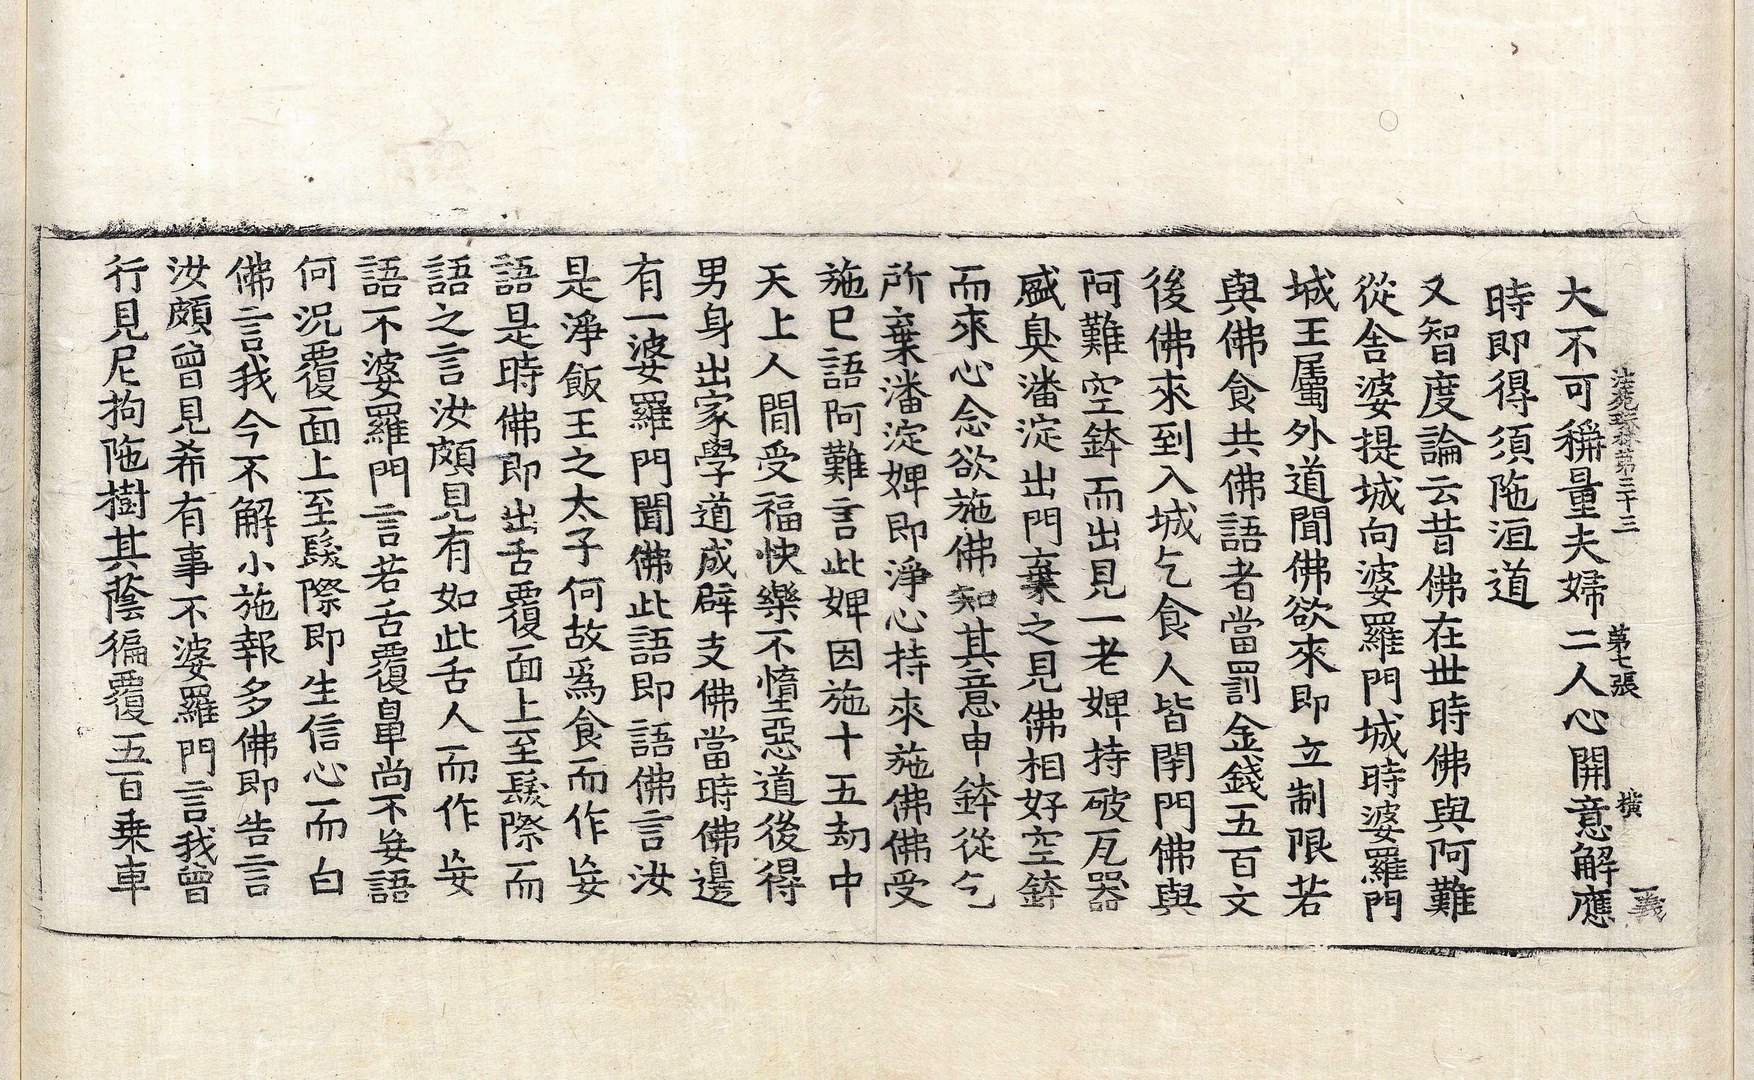 法苑珠林第三十三　第七張　橫　義
大不可稱量夫婦二人心開意解應
時即得須陁洹道
又智度論云昔佛在世時佛與阿難
從舍婆提城向婆羅門城時婆羅門
城王屬外道聞佛欲來即立制限若
與佛食共佛語者當罰金錢五百文
後佛來到入城乞食人皆閇門佛與
阿難空鉢而出見一老婢持破瓦器
盛臭潘淀出門棄之見佛相好空鉢
而來心念欲施佛知其意申鉢從乞
所棄潘淀婢即淨心持來施佛佛受
施已語阿難言此婢因施十五劫中
天上人間受福快樂不墮惡道後得
男身出家學道成辟支佛當時佛邊
有一婆羅門聞佛此語即語佛言汝
是淨飯王之太子何故爲食而作妄
語是時佛即出舌覆面上至髮際而
語之言汝頗見有如此舌人而作妄
語不婆羅門言若舌覆鼻尚不妄語
何況覆面上至髮際即生信心而白
佛言我今不解小施報多佛即告言
汝頗曾見希有事不婆羅門言我曾
行見尼拘陁樹其蔭徧覆五百乗車